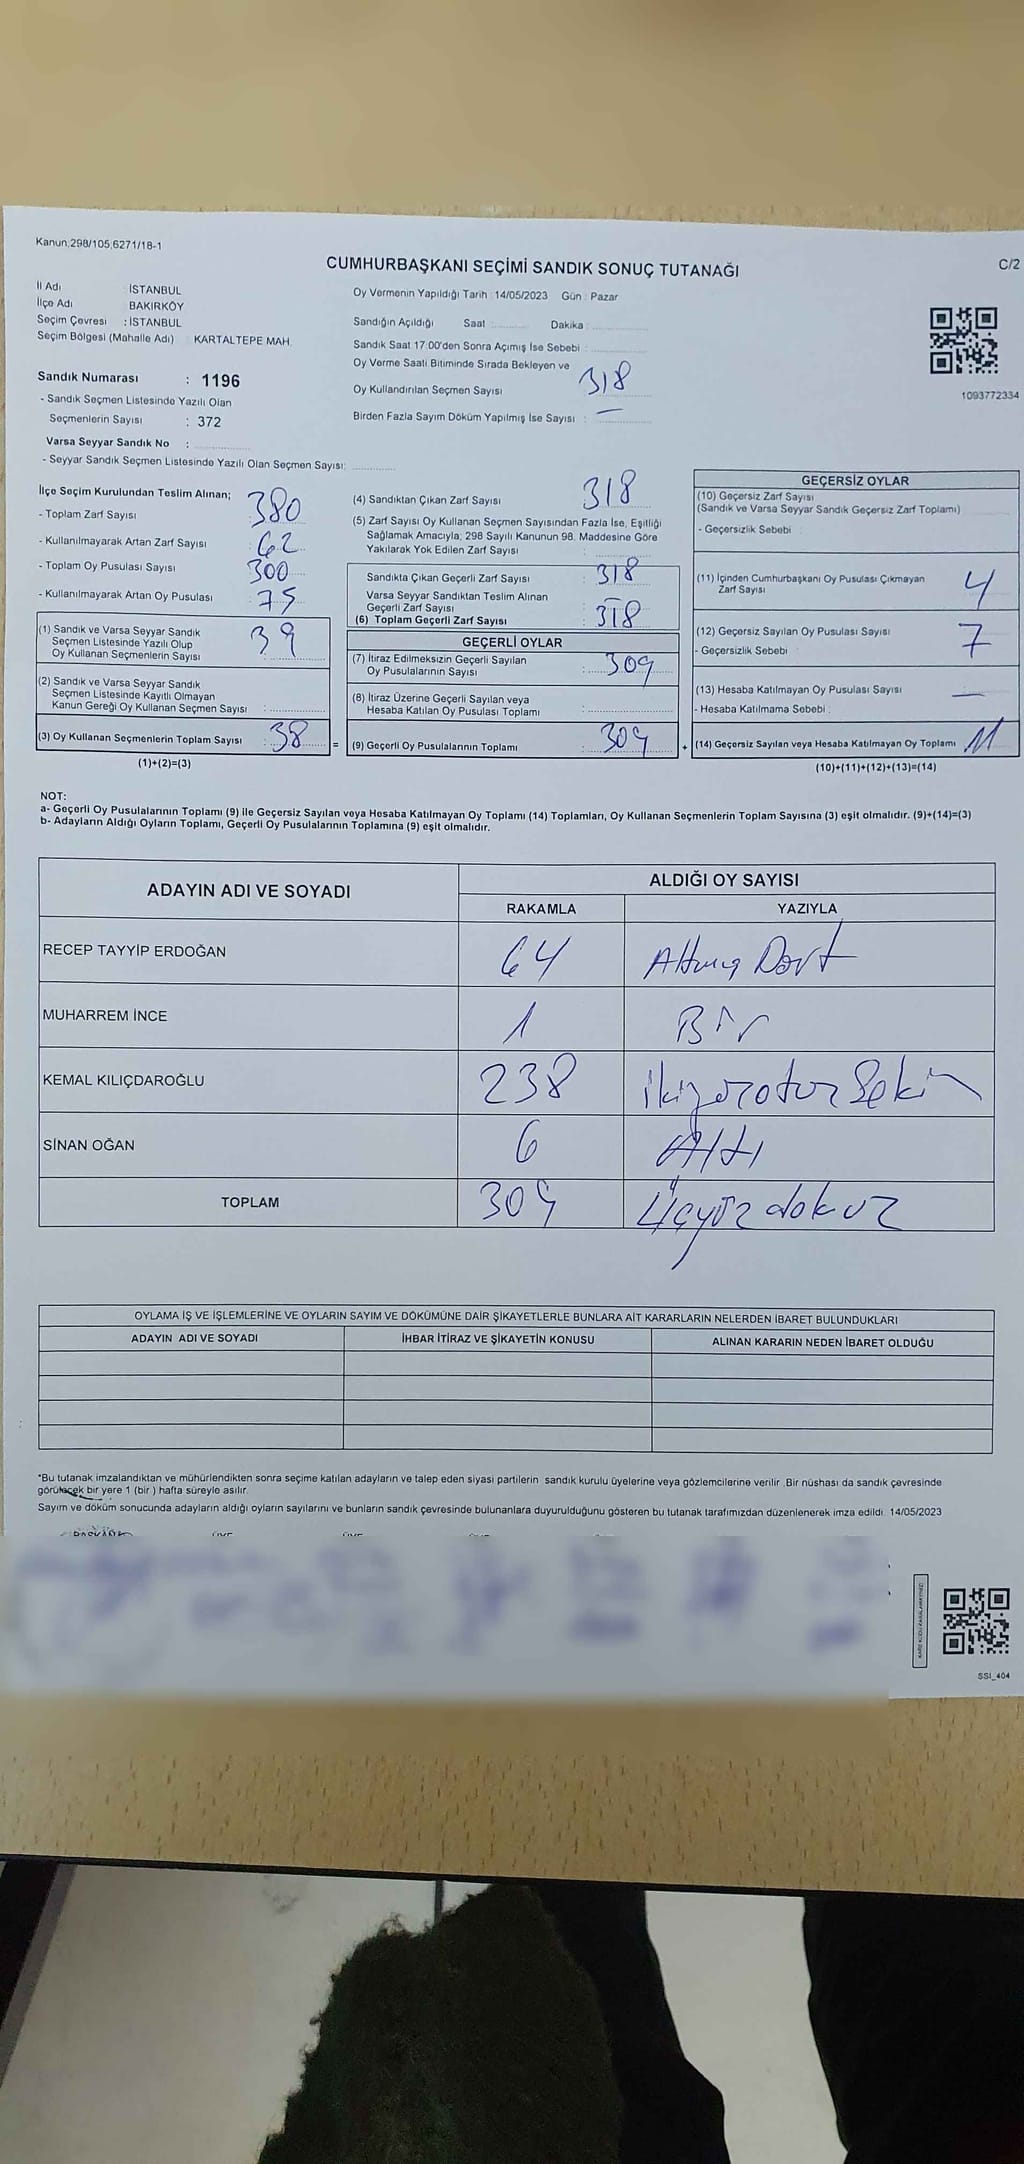 Kanun;298/105;6271/18-1
CUMHURBAŞKANI SEÇİMİ SANDIK SONUÇ TUTANAĞI
C/2
İl Adı İSTANBUL
İlçe Adı BAKIRKÖY
Seçim Çevresi : İSTANBUL
Seçim Bölgesi (Mahalle Adı) KARTALTEPE MAH.
Sandık Numarası : 1196
- Sandık Seçmen Listesinde Yazılı Olan
Seçmenlerin Sayısı : 372
Varsa Seyyar Sandık No :
- Seyyar Sandık Seçmen Listesinde Yazılı Olan Seçmen Sayısı:
Oy Vermenin Yapıldığı Tarih : 14/05/2023 Gün : Pazar
Sandığın Açıldığı Saat : Dakika :
Sandık Saat 17:00'den Sonra Açımış İse Sebebi :
Oy Verme Saati Bitiminde Sırada Bekleyen ve
Oy Kullandırılan Seçmen Sayısı 318
Birden Fazla Sayım Döküm Yapılmış İse Sayısı : —
1093772334
İlçe Seçim Kurulundan Teslim Alınan;
- Toplam Zarf Sayısı : 380
- Kullanılmayarak Artan Zarf Sayısı : 62
- Toplam Oy Pusulası Sayısı : 300
- Kullanılmayarak Artan Oy Pusulası : 75
(1) Sandık ve Varsa Seyyar Sandık
Seçmen Listesinde Yazılı Olup
Oy Kullanan Seçmenlerin Sayısı : 39
(2) Sandık ve Varsa Seyyar Sandık
Seçmen Listesinde Kayıtlı Olmayan
Kanun Gereği Oy Kullanan Seçmen Sayısı :
(3) Oy Kullanan Seçmenlerin Toplam Sayısı : 38
(1)+(2)=(3)
(4) Sandıktan Çıkan Zarf Sayısı : 318
(5) Zarf Sayısı Oy Kullanan Seçmen Sayısından Fazla İse, Eşitliği
Sağlamak Amacıyla; 298 Sayılı Kanunun 98. Maddesine Göre
Yakılarak Yok Edilen Zarf Sayısı :
Sandıkta Çıkan Geçerli Zarf Sayısı : 318
Varsa Seyyar Sandıktan Teslim Alınan
Geçerli Zarf Sayısı : —
(6) Toplam Geçerli Zarf Sayısı : 318
GEÇERLİ OYLAR
(7) İtiraz Edilmeksizin Geçerli Sayılan
Oy Pusulalarının Sayısı : 309
(8) İtiraz Üzerine Geçerli Sayılan veya
Hesaba Katılan Oy Pusulası Toplamı :
= (9) Geçerli Oy Pusulalarının Toplamı : 309
GEÇERSİZ OYLAR
(10) Geçersiz Zarf Sayısı
(Sandık ve Varsa Seyyar Sandık Geçersiz Zarf Toplamı)
- Geçersizlik Sebebi :
(11) İçinden Cumhurbaşkanı Oy Pusulası Çıkmayan
Zarf Sayısı 4
(12) Geçersiz Sayılan Oy Pusulası Sayısı 7
- Geçersizlik Sebebi :
(13) Hesaba Katılmayan Oy Pusulası Sayısı —
- Hesaba Katılmama Sebebi :
+ (14) Geçersiz Sayılan veya Hesaba Katılmayan Oy Toplamı 11
(10)+(11)+(12)+(13)=(14)
NOT:
a- Geçerli Oy Pusulalarının Toplamı (9) ile Geçersiz Sayılan veya Hesaba Katılmayan Oy Toplamı (14) Toplamları, Oy Kullanan Seçmenlerin Toplam Sayısına (3) eşit olmalıdır. (9)+(14)=(3)
b- Adayların Aldığı Oyların Toplamı, Geçerli Oy Pusulalarının Toplamına (9) eşit olmalıdır.
ADAYIN ADI VE SOYADI ALDIĞI OY SAYISI
RAKAMLA YAZIYLA
RECEP TAYYİP ERDOĞAN 64 Altmış Dört
MUHARREM İNCE 1 Bir
KEMAL KILIÇDAROĞLU 238 ikiyüzotuz Sekiz
SİNAN OĞAN 6 Altı
TOPLAM 309 Üçyüz dokuz
OYLAMA İŞ VE İŞLEMLERİNE VE OYLARIN SAYIM VE DÖKÜMÜNE DAİR ŞİKAYETLERLE BUNLARA AİT KARARLARIN NELERDEN İBARET BULUNDUKLARI
ADAYIN ADI VE SOYADI İHBAR İTİRAZ VE ŞİKAYETİN KONUSU ALINAN KARARIN NEDEN İBARET OLDUĞU
*Bu tutanak imzalandıktan ve mühürlendikten sonra seçime katılan adayların ve talep eden siyasi partilerin sandık kurulu üyelerine veya gözlemcilerine verilir. Bir nüshası da sandık çevresinde
görülecek bir yere 1 (bir) hafta süreyle asılır.
Sayım ve döküm sonucunda adayların aldığı oyların sayılarını ve bunların sandık çevresinde bulunanlara duyurulduğunu gösteren bu tutanak tarafımızdan düzenlenerek imza edildi. 14/05/2023
BAŞKAN ÜYE ÜYE
SSI_404